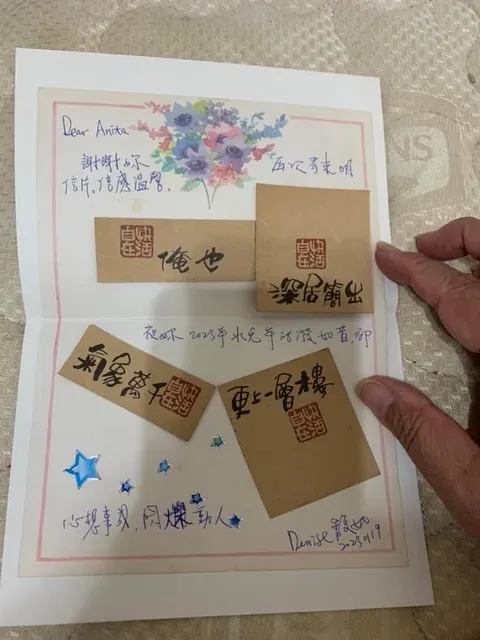 Dear Anita
謝謝妳 再次寄來明
信片,倍感溫馨.
快活自在
俺也
快活自在
深居簡出
祝妳 2023年水兔年活潑如昔,卻
氣象萬千
快活自在
更上一層樓
快活自在
心想事成,閃爍動人
Denise